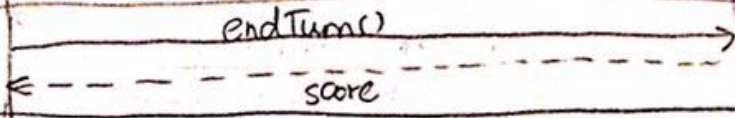 endTurn()
score